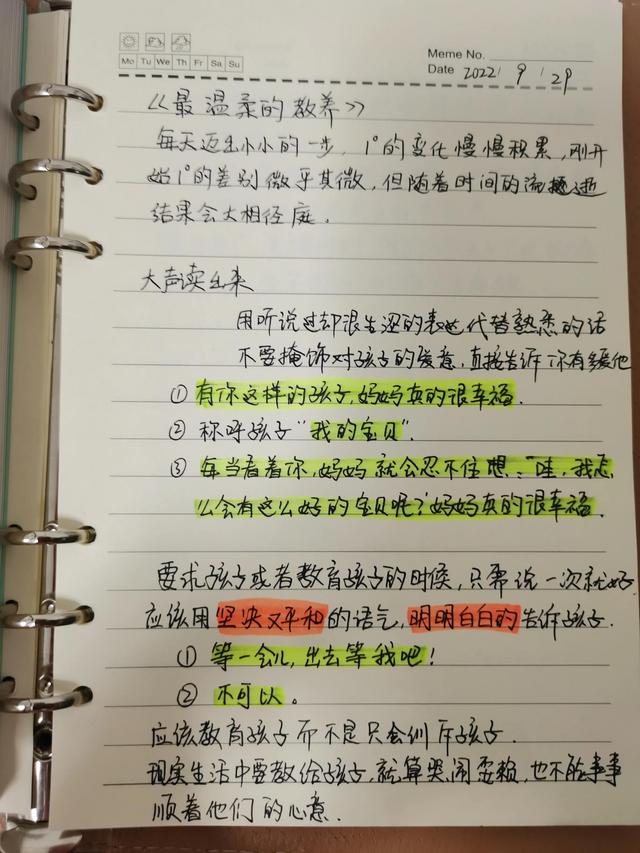 Meme No.
Mo Tu We Th Fr Sa Su
Date 2022 / 9 / 29
《最温柔的教养》
每天迈出小小的一步，1°的变化慢慢积累，刚开
始1°的差别微乎其微，但随着时间的流逝
结果会大相径庭．
大声读出来
用听说过却很生涩的表达代替熟悉的话
不要掩饰对孩子的爱意，直接告诉你有多爱他
① 有你这样的孩子，妈妈真的很幸福．
② 称呼孩子“我的宝贝”．
③ 每当看着你，妈妈就会忍不住想：“哇，我怎
么会有这么好的宝贝呢？”妈妈真的很幸福．
要求孩子或者教育孩子的时候，只需说一次就好
应该用坚决又平和的语气，明明白白的告诉孩子．
① 等一会儿，出去等我吧！
② 不可以。
应该教育孩子而不是只会训斥孩子．
现实生活中要教给孩子，就算哭闹耍赖，也不能事事
顺着他们的心意．